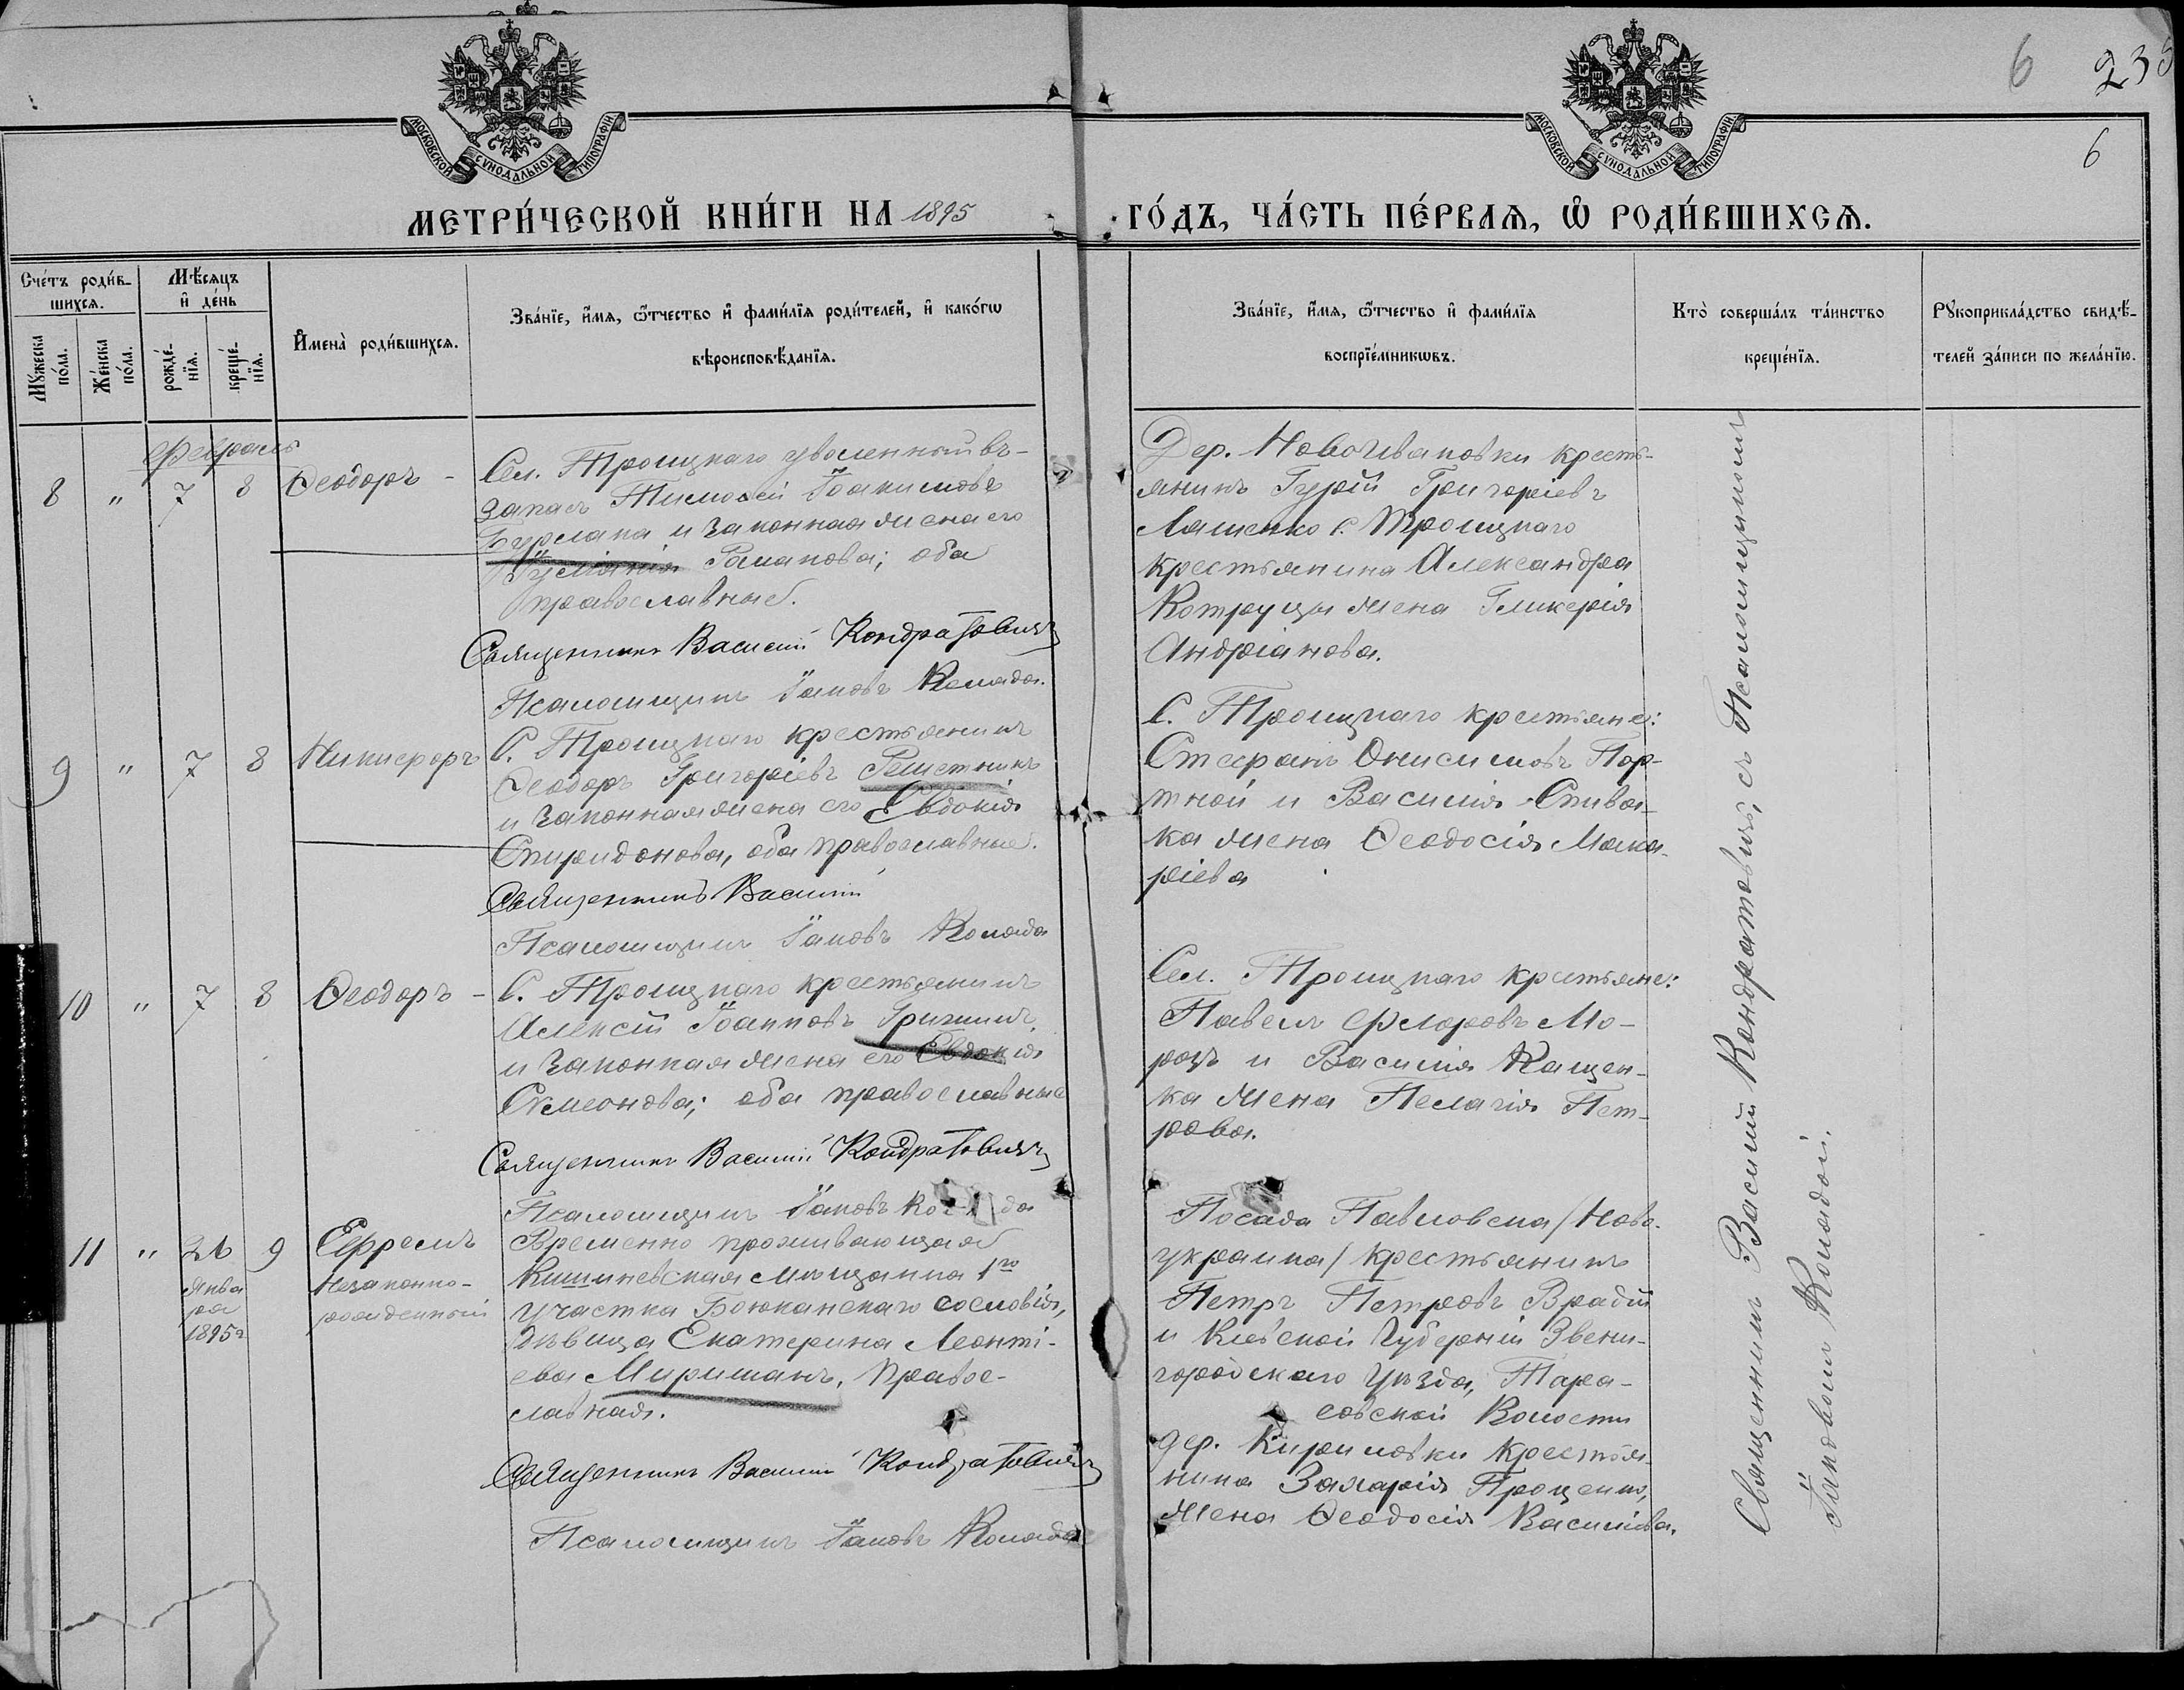 МОСКОВСКОЙ СѴНОДАЛЬНОЙ ТИПОГРАФІИ
МОСКОВСКОЙ СѴНОДАЛЬНОЙ ТИПОГРАФІИ
6 23
6
МЕТРИ́ЧЕСКОЙ КНИ́ГИ НА 1895
ГО́ДЪ, ЧА́СТЬ ПЕ́РВАЯ, Ѡ҆ РОДИ́ВШИХСЯ.
Сче́тъ роди́в-
шихся.
Мѣ́сяцъ
и҆ де́нь
Мꙋ́жеска
по́ла.
Же́нска
по́ла.
рожде́-
нїя.
креще́-
нїя.
И҆мена̀ роди́вшихся.
Зва́нїе, и҆́мя, ѻ҆́тчество и҆ фами́лїя роди́телей, и҆ како́гѡ
вѣроисповѣ́данїя.
Зва́нїе, и҆́мя, ѻ҆́тчество и҆ фами́лїя
воспрїе́мникѡвъ.
Кто̀ соверша́лъ та́инство
креще́нїя.
Рꙋкоприкла́дство свидѣ́-
телей за́писи по жела́нїю.
Февраль
8 " 7 8 Ѳеодоръ -
Сел. Троицкаго уволенный въ-
запасъ Тимоѳей Іоакимовъ
Бурлака и законная жена его
Романова; оба
православные.
Священникъ Василій Кондратовичъ
Псаломщикъ Іаковъ Коляда.
Дер. Новоивановки кресть-
янинъ Гурій Григоріевъ
Ляшенко с. Троицкаго
крестьянина Александра
Котруцы жена Гликерія
Андріанова.
9 " 7 8 Никифоръ
С. Троицкаго крестьянинъ
Ѳеодоръ Григоріевъ Решетникъ
и законная жена его Евдокія
Спиридонова, оба православные.
Священникъ Василій
Псаломщикъ Іаковъ Коляда
С. Троицкаго крестьяне:
Стефанъ Онисимовъ Пор-
тной и Василія Спива-
ка жена Ѳеодосія Мака-
ріева
10 " 7 8 Ѳеодоръ -
С. Троицкаго крестьянинъ
Алексій Іоанновъ
и законная жена его Евдокія
Симеонова; оба православные
Священникъ Василій Кондратовичъ
Псаломщикъ Іаковъ Коляда
Сел. Троицкаго крестьяне:
Павелъ Флоровъ Мо-
розъ и Василія Кащен-
ка жена Пелагія Пет-
рова.
11 " 26 9 Ефремъ
Янва
ря
1895г
Незаконно-
рожденный
Временно проживающая
Кишиневская мѣщанка 1го
участка Боюканскаго сословія,
дѣвица Екатерина Леонті-
ева Миришанъ, правос-
лавная.
Священникъ Василій Кондратовичъ
Псаломщикъ Іаковъ Коляда
Посада Павловска /Ново-
украинка/ крестьянинъ
Петръ Петровъ Врадій
и Кіевской Губерніи Звени-
городскаго Уѣзда, Тара-
совской Волости
дер. Кириловки крестья-
нина Захарія Проценко,
жена Ѳеодосія Василіева.
Священникъ Василій Кондратовичъ, съ Псаломщикомъ
Іаковомъ Колядой.